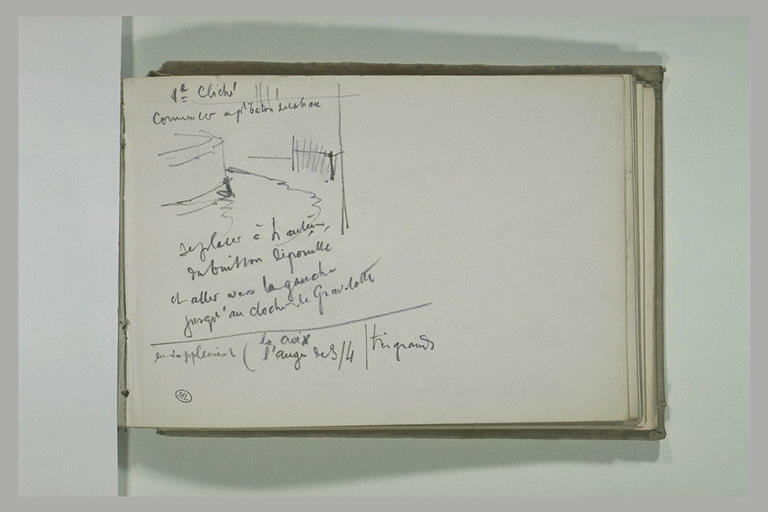 1er Cliché
Commencer au pt bâton
se placer à hauteur
du buisson dépouillé
et aller vers la gauche
jusqu'au clocher de Gravelotte
en supplément ( la croix
l'ange de 3/4 | très grands
ML